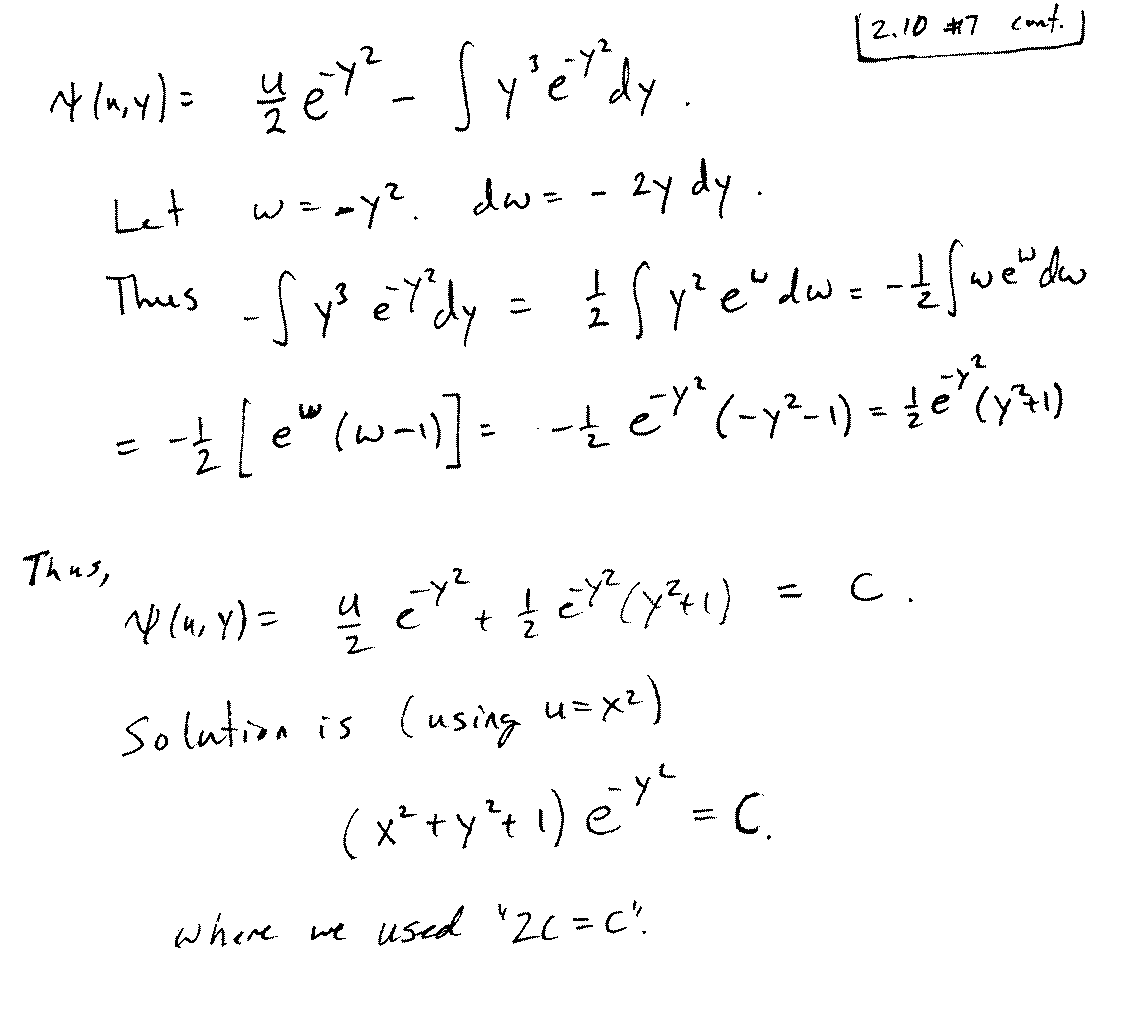 2.10 #7 cont.
ψ(u,y) = u/2 e^{-y²} - ∫ y³ e^{-y²} dy .
Let w = -y². dw = - 2y dy .
Thus -∫ y³ e^{-y²} dy = 1/2 ∫ y² e^w dw = -1/2 ∫ w e^w dw
= -1/2 [ e^w (w-1) ] = -1/2 e^{-y²} (-y²-1) = 1/2 e^{-y²} (y²+1)
Thus,
ψ(u,y) = u/2 e^{-y²} + 1/2 e^{-y²} (y²+1) = C .
Solution is (using u=x²)
(x²+y²+1) e^{-y²} = C.
where we used "2C = C".